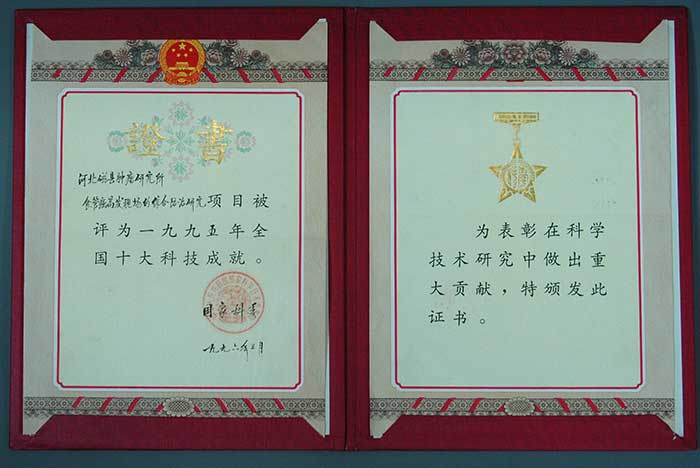 證書
河北磁县肿瘤研究所
食管癌高发现场创综合防治研究项目被
评为一九九五年全
国十大科技成就。
国家科委
一九九六年三月
为表彰在科学
技术研究中做出重
大贡献，特颁发此
证书。